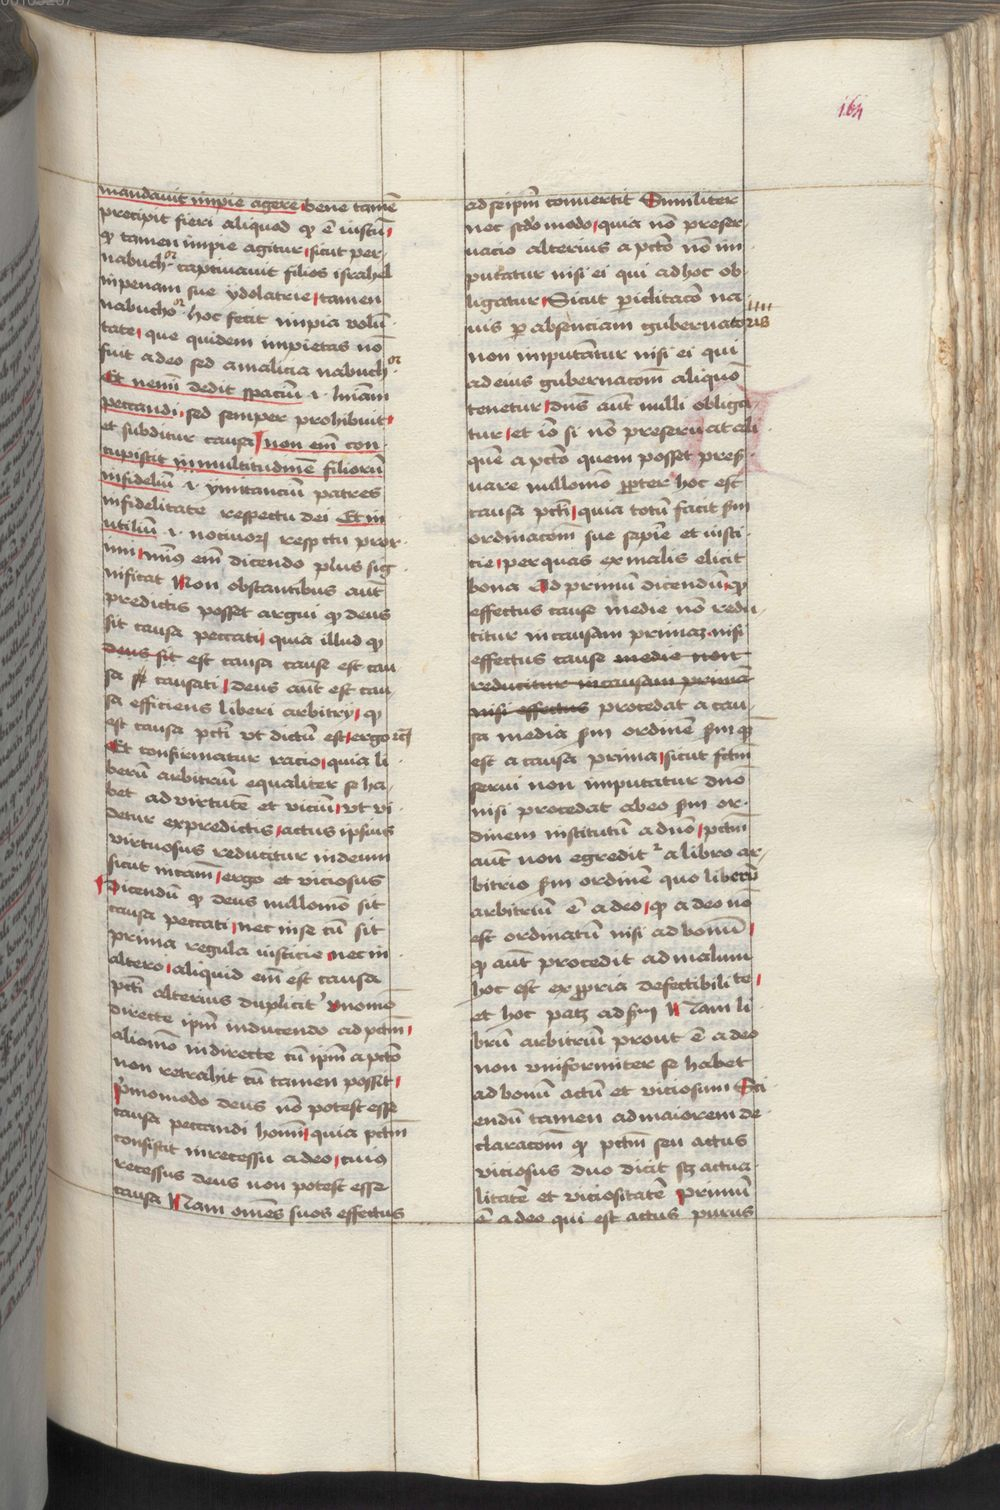 164
mandauit impie agere bene tamē
precipit fieri aliquod qꝫ ē iustū
qꝫ tamen impie agitur sicut per
nabuchoꝛ captiuauit filios israhel
in penam sue ydolatrie tamen
nabuchoꝛ hoc fecit impia volū
tate que quidem impietas nō
fuit a deo sed a malicia nabuchꝛ
Et nemī dedit spaciū .i. līam
peccandi sed semper prohibuit
et subditur causa non em̄ con
cupiscit in multitudinē filiorū
infidelium .i. ymitanciū patres
infidelitate respectu dei Et in
utiliū .i. nociuoꝝ respectu prox
imi minꝰ em̄ dicendo plus sig
nificat Non obstantibus aūt
predictis posset argui qꝫ deus
sit causa peccati quia illud qꝫ
deus sit est causa cause est cau
sa causati deus aūt est cau
sa efficiens liberi arbitrij qꝫ
est causa pcti vt dictū est ergo ⁊c̄
Et confirmatur racio quia li
berū arbitriū equaliter se ha
bet ad virtutē et viciū vt vi
detur ex predictis actus ipsius
virtuosus reducitur in deum
sicut in cām ergo et viciosus
Dicendū qꝫ deus nullomō sit
causa peccati nec in se cū sit
prima regula iusticie nec in
altero aliquid em̄ est causa
pcti alterius duplicitʼ vnomō
directe ipm̄ inducendo ad pctm̄
aliomō indirecte cū ipm̄ a pctō
non retrahit cū tamen possit
pͥmomodo deus nō potest esse
causa peccandi homī quia pctm̄
consistit in recessu a deo cuiꝰ
recessus deus non potest esse
causa Nam om̄es suos effectus
ad seipm̄ conuertit Similiter
nec scd̄o modo quia nō preser
uacio alterius a pctō nō im
putatur nisi ei qui ad hoc ob
ligatur Sicut periclitacō na
uis per absenciam gubernatoris
non imputatur nisi ei qui
ad eius gubernacōm aliquō
tenetur dn̄s aūt nulli obliga
tur et iō si nō preseruat ali
quē a pctō quem posset preẜ
uare nullomō propter hoc est
causa pcti quia totū facit ẜm
ordinacōm sue sapīe et iusti
cie per quas ex malis elicit
bona Ad primū dicendū qꝫ
effectus cause medie nō redu
citur in causam primaꝫ nisi
effectus cause medie non
reducitur in causam primā
nisi effectus procedat a cau
sa media ẜm ordinē ẜm qꝫ
est a causa prima sicut fctm̄
serui non imputatur dn̄o
nisi procedat ab eo ẜm or
dinem institutū a dn̄o pctm̄
aūt non egreditʳ a libro ar
bitrio ẜm ordinē quo liberū
arbitriū ē a deo qꝫ a deo nō
est ordinatū nisi ad bonū
qꝫ aūt procedit ad malum
hoc est ex propria defectibilite
et hoc patꝫ ad ẜm Nam li
brū arbitriū prout ē a deo
non vniformiter se habet
ad bonū actū et viciosum Sci
endū tamen ad maiorem de
claracōm qꝫ pctm̄ seu actus
viciosus duo dicit scꝫ actua
litatē et viciositatē primū
ē a deo qui est actus purus